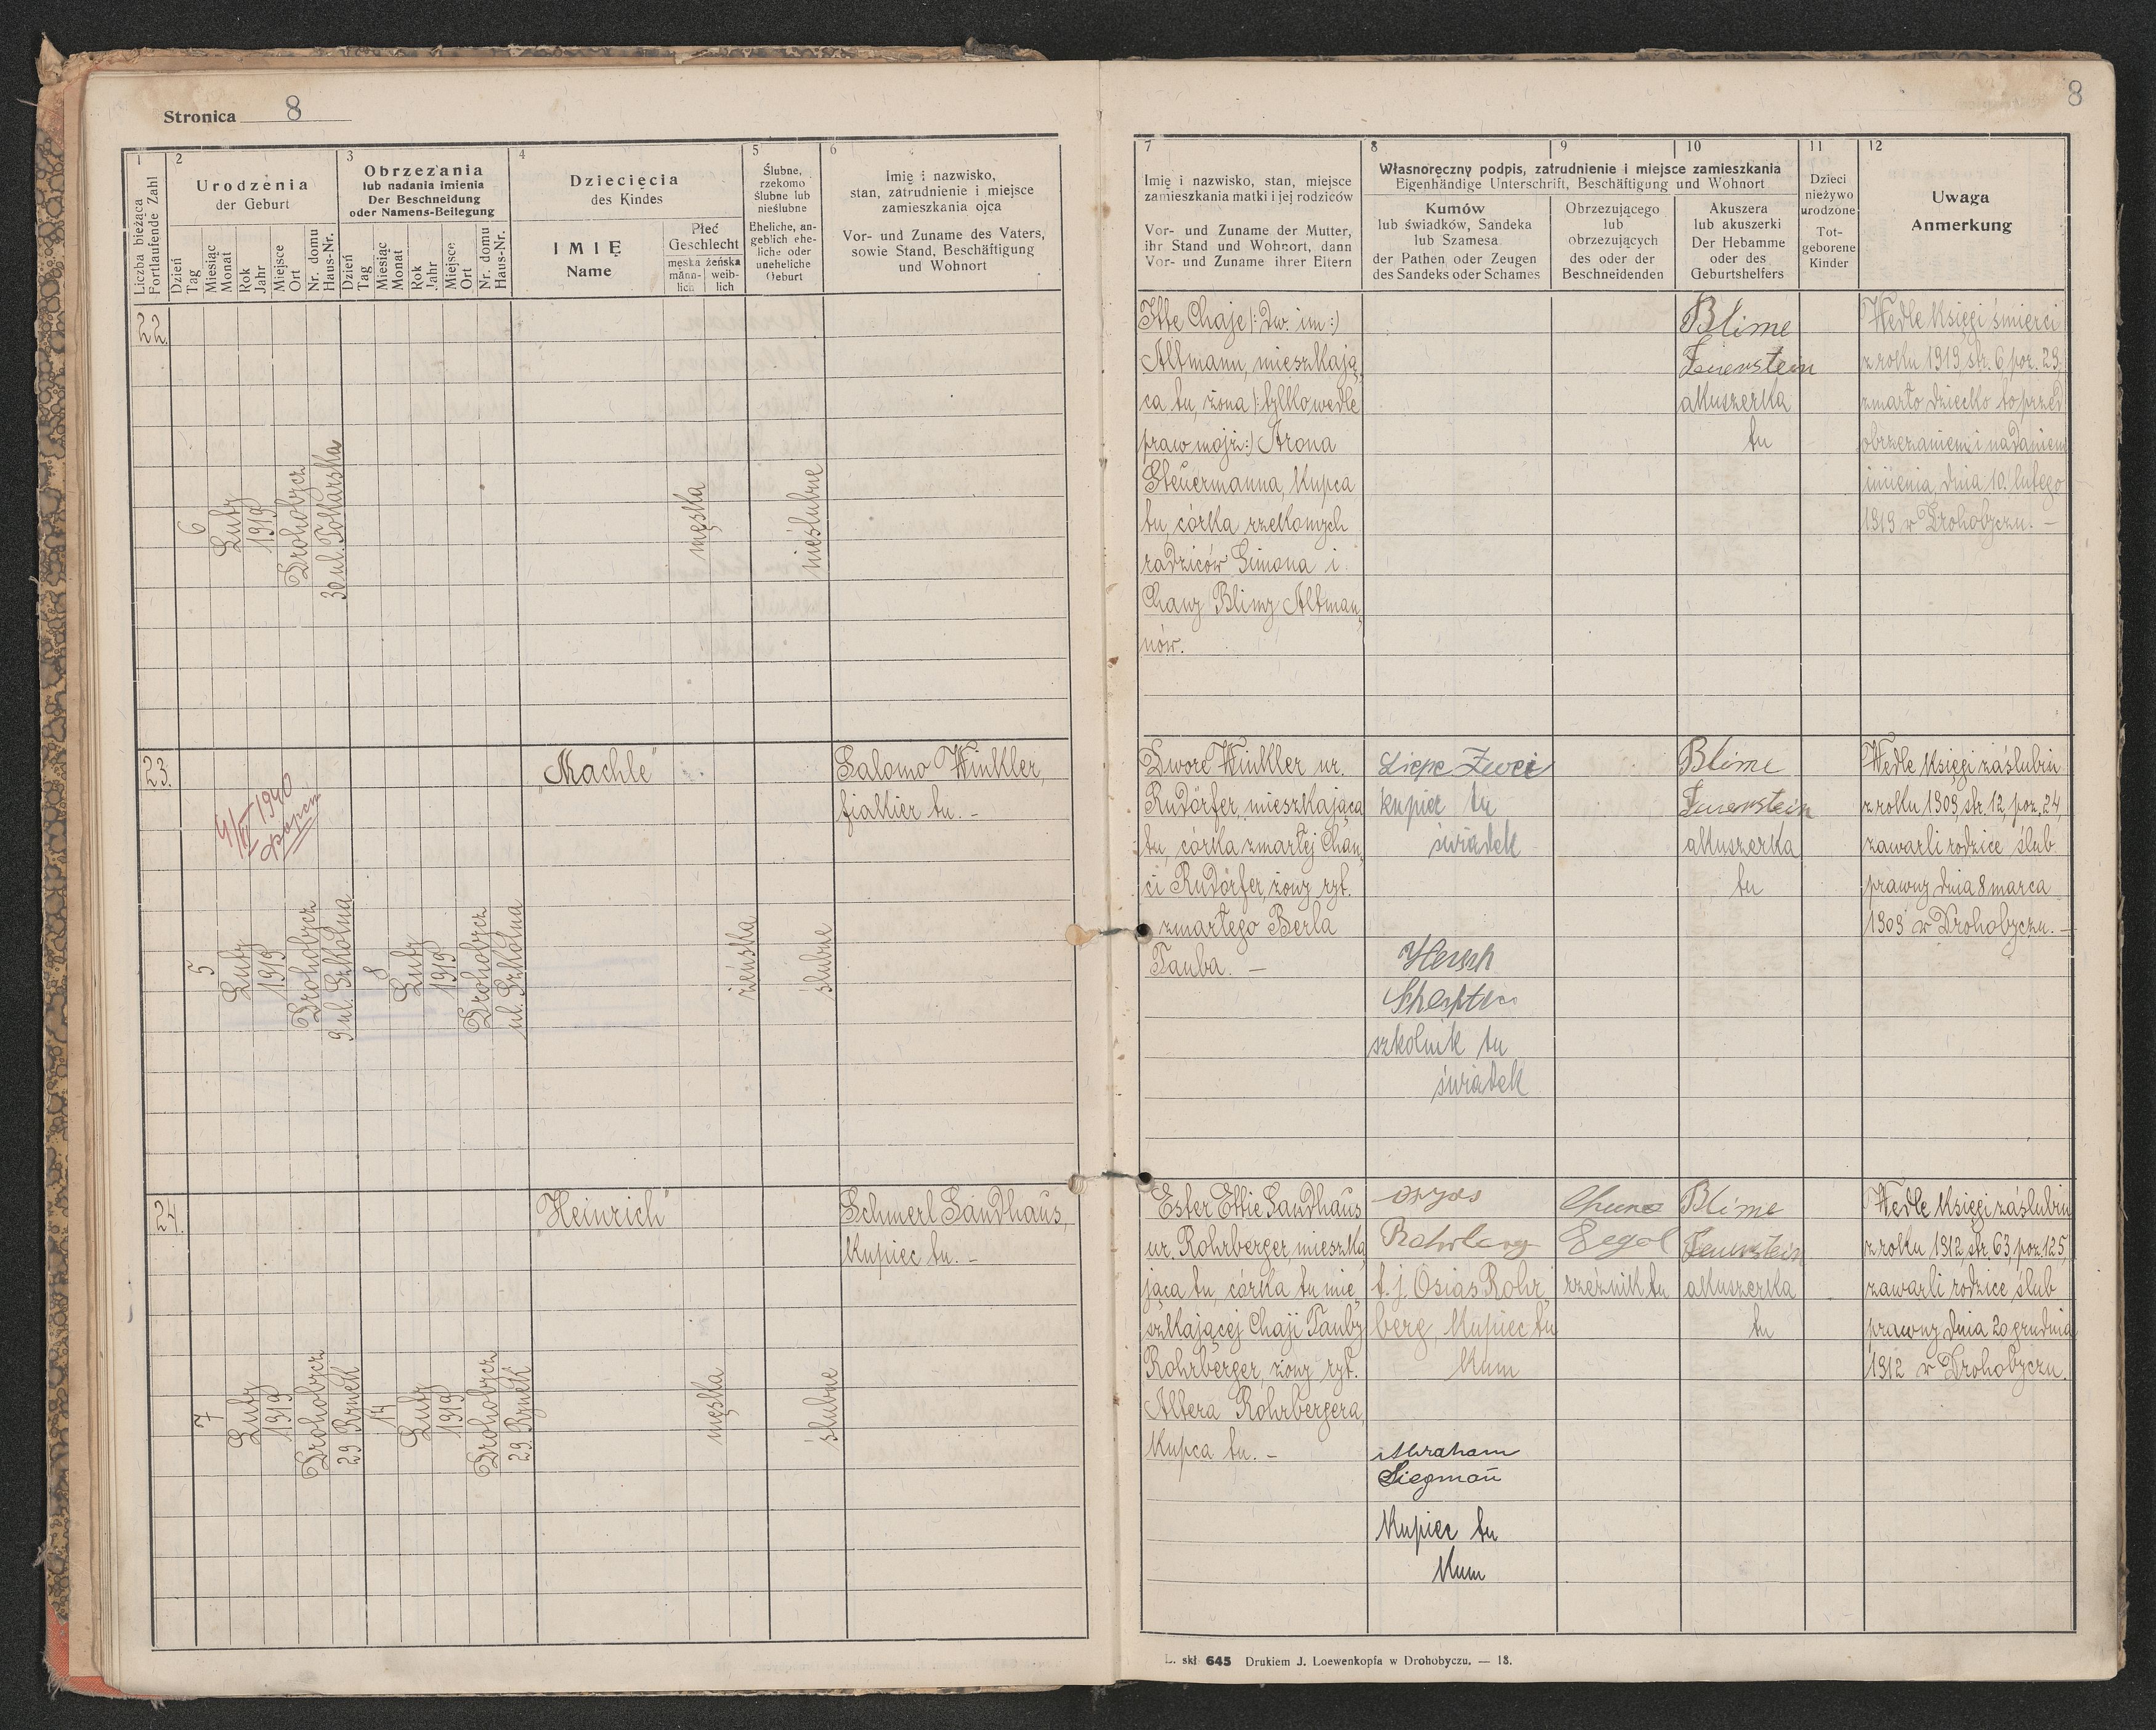 Stronica 8
8
1
2
3
4
5
6
Liczba bieżąca
Fortlaufende Zahl
Urodzenia
der Geburt
Dzień
Tag
Miesiąc
Monat
Rok
Jahr
Miejsce
Ort
Nr. domu
Haus-Nr.
Obrzezania
lub nadania imienia
Der Beschneidung
oder Namens-Beilegung
Dzień
Tag
Miesiąc
Monat
Rok
Jahr
Miejsce
Ort
Nr. domu
Haus-Nr.
Dziecięcia
des Kindes
IMIĘ
Name
Płeć
Geschlecht
męska
männ-
lich
żeńska
weib-
lich
Ślubne,
rzekomo
ślubne lub
nieślubne
Eheliche, an-
geblich ehe-
liche oder
uneheliche
Geburt
Imię i nazwisko,
stan, zatrudnienie i miejsce
zamieszkania ojca
Vor- und Zuname des Vaters,
sowie Stand, Beschäftigung
und Wohnort
7
8
9
10
11
12
Imię i nazwisko, stan, miejsce
zamieszkania matki i jej rodziców
Vor- und Zuname der Mutter,
ihr Stand und Wohnort, dann
Vor- und Zuname ihrer Eltern
Własnoręczny podpis, zatrudnienie i miejsce zamieszkania
Eigenhändige Unterschrift, Beschäftigung und Wohnort
Kumów
lub świadków, Sandeka
lub Szamesa
der Pathen oder Zeugen
des Sandeks oder Schames
Obrzezującego
lub
obrzezujących
des oder der
Beschneidenden
Akuszera
lub akuszerki
Der Hebamme
oder des
Geburtshelfers
Dzieci
nieżywo
urodzone
Tot-
geborene
Kinder
Uwaga
Anmerkung
22.
6
Luty
1919
Drohobycz
30 ul.
męska
nieślubne
Itte Chaje /: Dw. im :/
Altmann, mieszkają,
ca tu, żona /: tylko wedle
praw mojż :/ Arona
Steuermanna, kupca
tu, córka rzekomych
rodziców Simona i
Chany Blimy Altman,
nów.
Blime
Feuerstein
akuszerka
tu
Wedle księgi śmierci
z roku 1919, str. 6, poz. 29,
zmarło dziecko to przed
obrzezaniem i nadaniem
imienia, dnia 10. lutego
1919 w Drohobyczu. —
23.
4/II 1940
5
Luty
1919
Drohobycz
9 ul. Szkolna
8
Luty
1919
Drohobycz
ul. Szkolna
„Machle"
żeńska
ślubne
Salomo Winkler,
fiakier tu. –
Dwore Winkler ur.
Rudörfer, mieszkająca
tu, córka zmarłej Chan,
ci Rudörfer, żony ryt.
zmarłego Berla
Tauba. —
kupiec tu
świadek
Hersch
szkolnik tu
świadek
Blime
Feuerstein
akuszerka
tu
Wedle księgi zaślubin
z roku 1909, str. 12, poz. 24,
zawarli rodzice ślub
prawny dnia 8 marca
1909 w Drohobyczu. —
24.
7
Luty
1919
Drohobycz
29 Rynek
14
Luty
1919
Drohobycz
29. Rynek
„Heinrich"
męska
ślubne
Schmerl Sandhaus,
kupiec tu. –
Ester Ettie Sandhaus
ur. Rohrberger, mieszka,
jąca tu, córka tu mie,
szkającej Chaji Tauby
Rohrberger, żony ryt.
Altera Rohrbergera,
kupca tu. –
Rohrberg
t. j. Osias Rohr,
berg, kupiec tu
kum
Abraham
Siegman
kupiec tu
kum
Segal
rzeźnik tu
Blime
Feuerstein
akuszerka
tu
Wedle księgi zaślubin
z roku 1912, str. 63, poz. 125,
zawarli rodzice ślub
prawny dnia 20 grudnia
1912 w Drohobyczu.
L. skł 645 Drukiem J. Loewenkopfa w Drohobyczu. — 18.